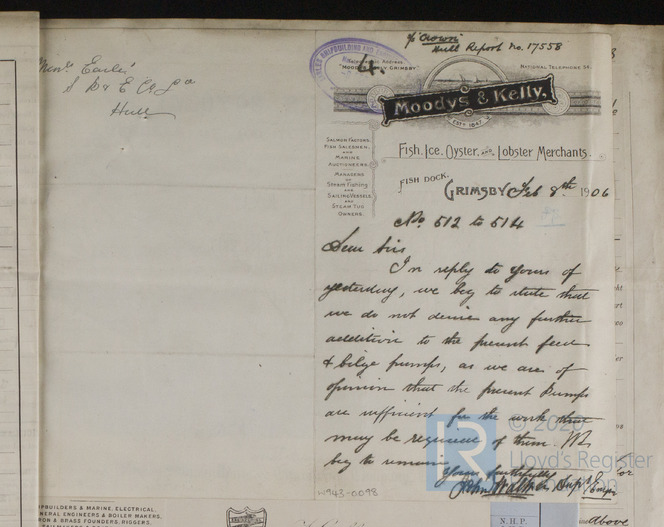 ℅ Crown
Hull Report No. 17558
SHIPBUILDING AND
4.
"MOODYS KELLY, GRIMSBY"
NATIONAL TELEPHONE 54.
Moodys & Kelly,
ESTD 1847
SALMON FACTORS,
FISH SALESMEN,
AND
MARINE
AUCTIONEERS.
MANAGERS
OF
STEAM FISHING
AND
SAILING VESSELS
AND
STEAM TUG
OWNERS.
Fish, Ice, Oyster, AND Lobster Merchants.
FISH DOCK,
GRIMSBY Feb 8th 1906
No. 512 to 514
Dear Sirs
In reply to yours of
yesterday, we beg to state that
we do not desire any further
addition to the present feed
& bilge pumps, as we are of
opinion that the present Pumps
are sufficient for the work that
may be required of them. We
beg to remain
Yours faithfully
John Walker Supt Engr
Messrs Earle's
S B & E Co Ld
Hull
© 2020
LR
Lloyd's Register
Foundation
W943-0098
SHIPBUILDERS & MARINE, ELECTRICAL,
GENERAL ENGINEERS & BOILER MAKERS,
IRON & BRASS FOUNDERS, RIGGERS,
N.H.P.
above